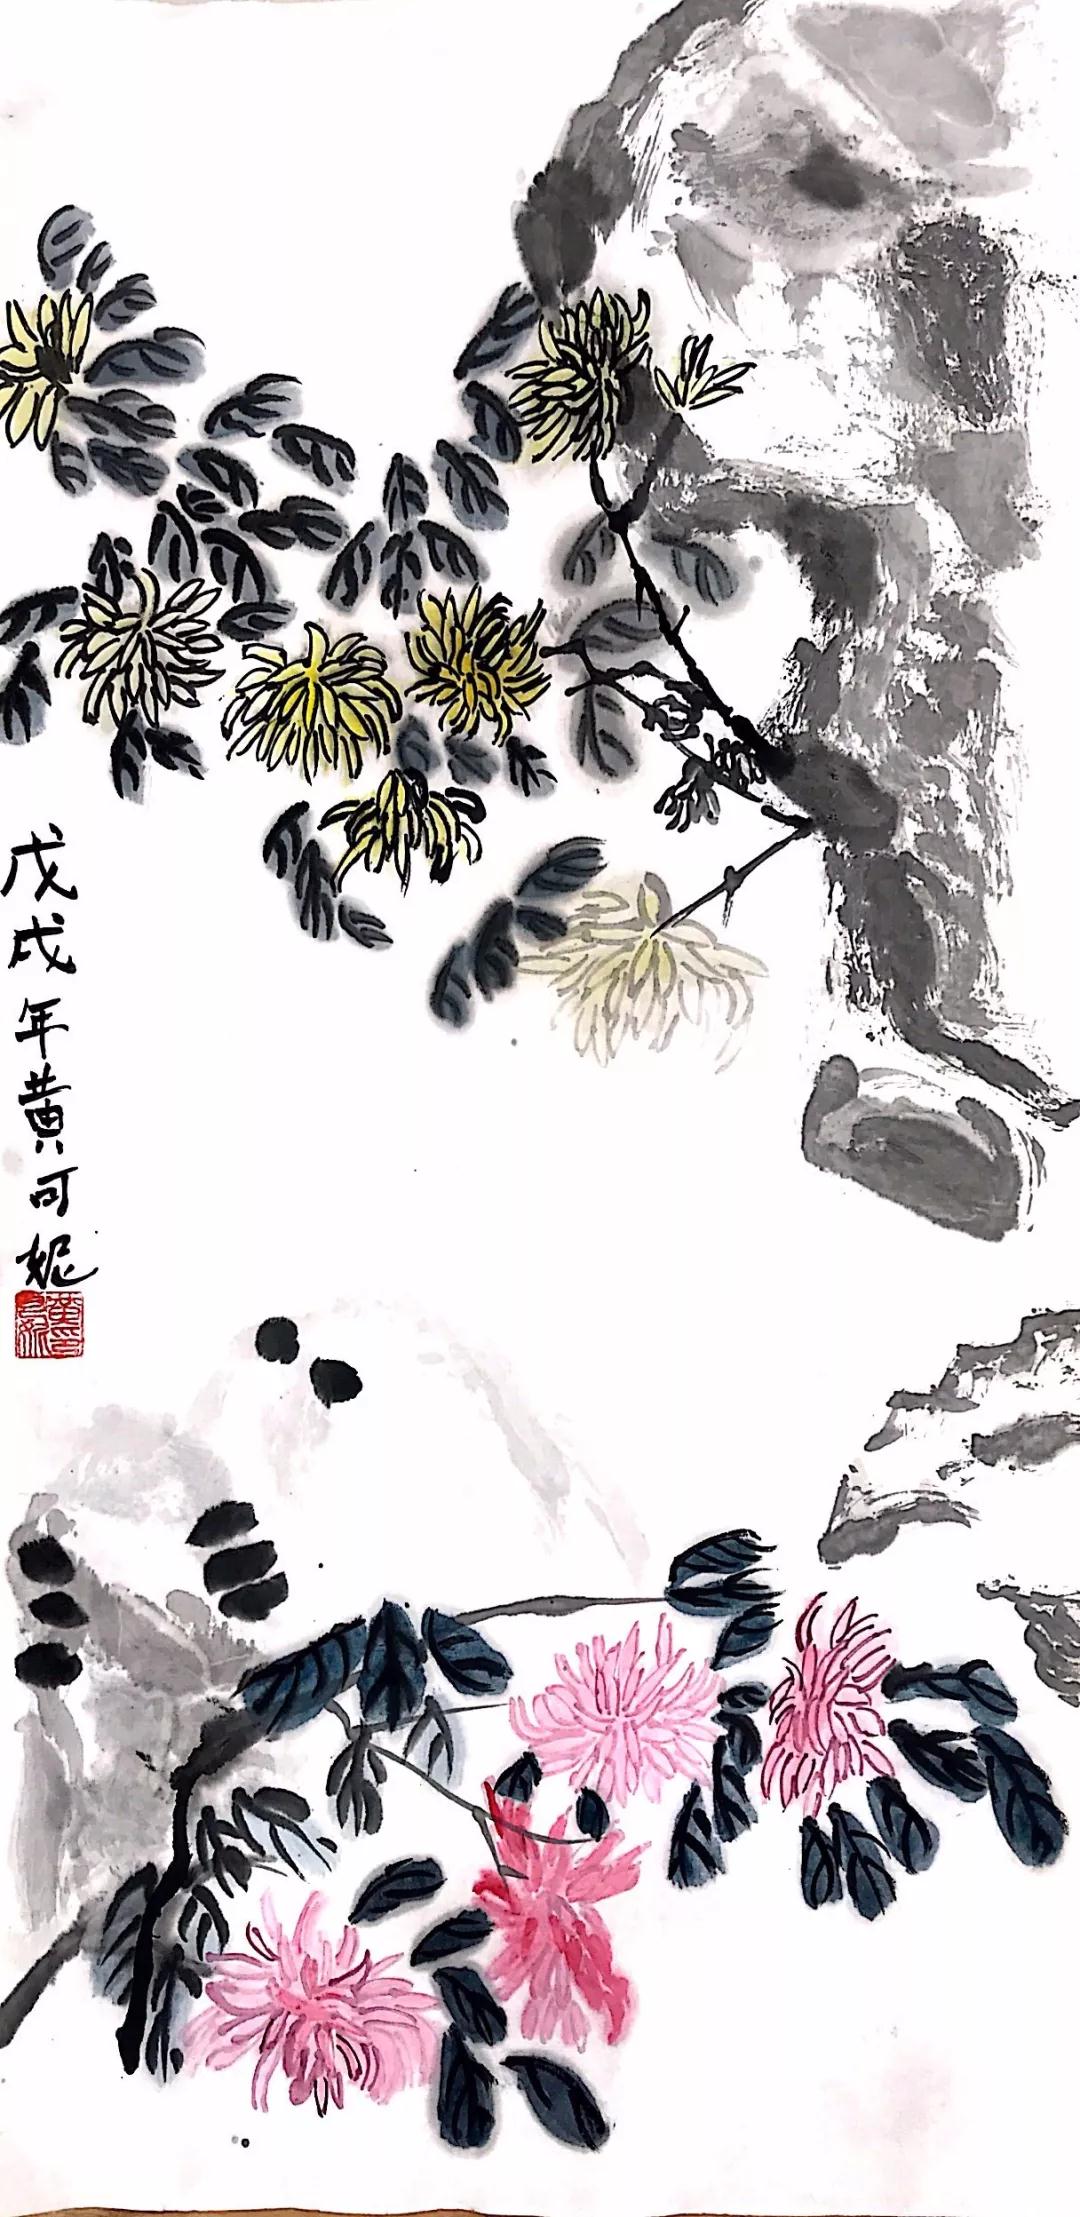 戊戌年黄可妮